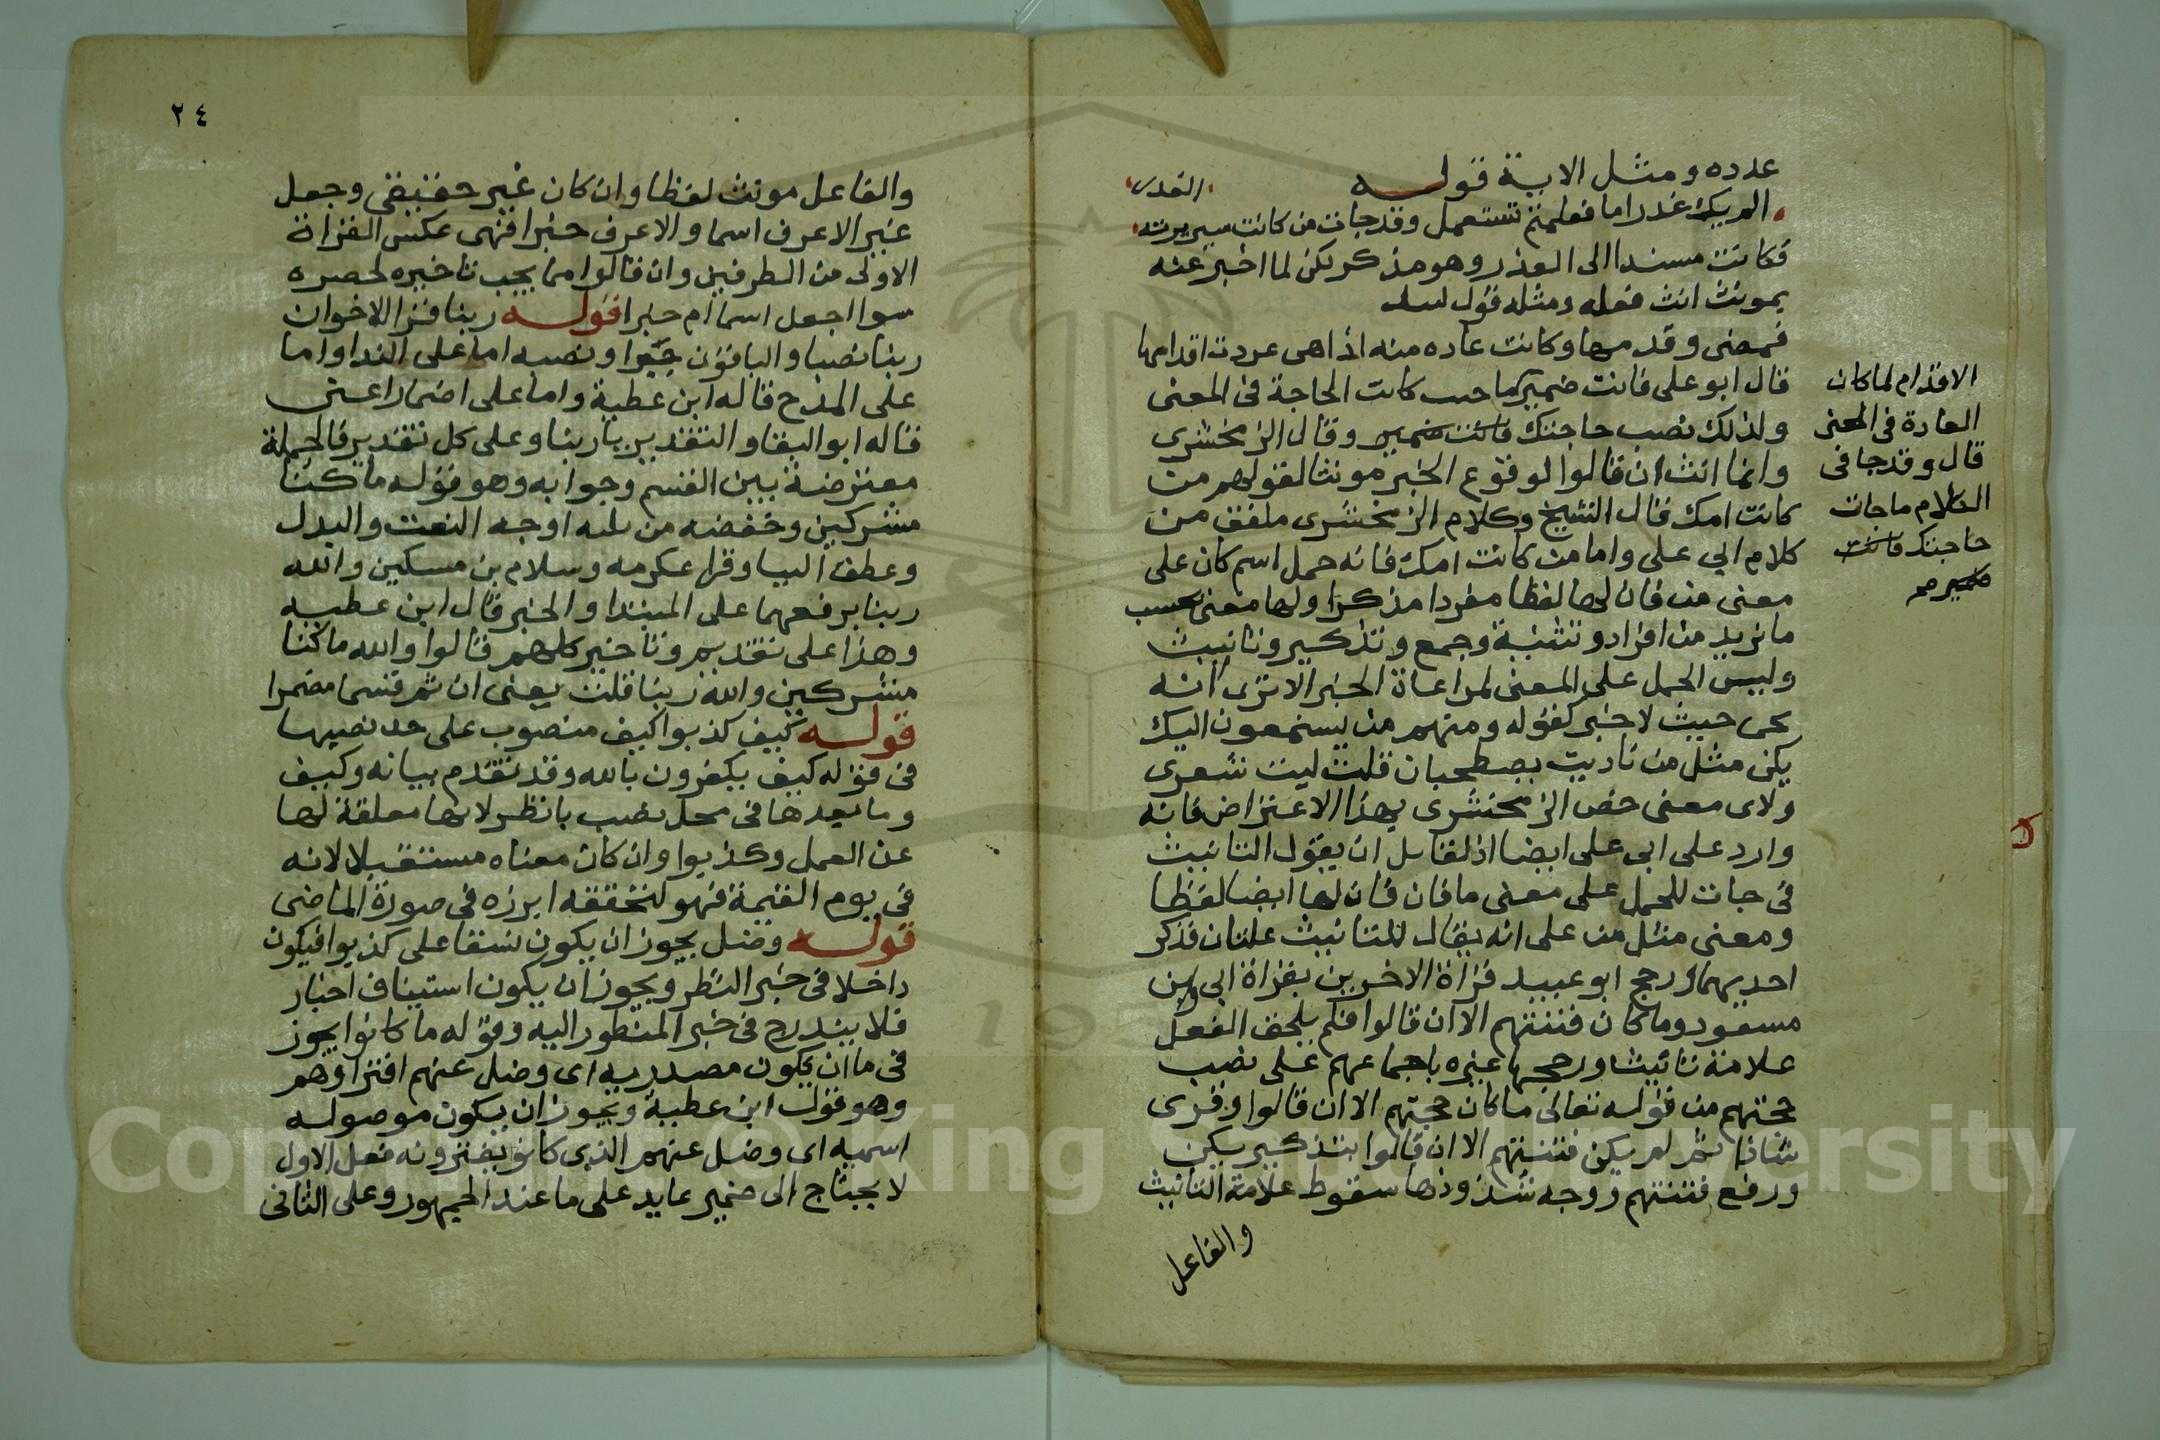 عدده ومثل الاية قوله
الم يك غدرا ما فعلمتم تستعمل وقد جات من كانت سريرته الغدر
فكانت مسندا الى الغدر وهو مذكر لكن لما اخبر عنه
بمونث انث فعله ومثله قول لبيد
فمضى وقدمها وكانت عاده منه اذا هى عردت اقدامها
قال ابو على فانث ضمير كما حيث كانت الحاجة فى المعنى
ولذلك نصب حاجتك فانث ضمير وقال الزمخشرى
وانما انث ان قالوا لوقوع الخبر مونثا لقولهم من
كانت امك قال الشيخ وكلام الزمخشرى ملفق من
كلام ابي على واما من كانت امك فانه حمل اسم كان على
معنى من فان لها لفظا مفردا مذكرا ولها معنى بحسب
ما تريد من افراد وتثنية وجمع وتذكير وتانيث
وليس الحمل على المعنى لمراعاة الخبر الا ترى انه
يجى حيث لا خبر كقوله ومنهم من يستمعون اليك
يكن مثل من ناديت يصطحبان قلت ليت شعرى
ولاى معنى خص الزمخشرى بهذا الاعتراض فانه
وارد على ابى على ايضا اذ لقايل ان يقول التانيث
فى جات للحمل على معنى ما فان فان لها ايضا لفظا
ومعنى مثل من على انه يقال للتانيث علتان فذكر
احديهما ورجح ابو عبيد قراة الاخرين بقراة ابى وابن
مسعود وما كان فتنتهم الا ان قالوا فلم يلحق الفعل
علامة تانيث ورجحها غيره باجماعهم على نصب
حجتهم من قوله تعالى ما كان حجتهم الا ان قالوا وقرى
شاذا ثم لم يكن فتنتهم الا ان قالوا بتذكير يكن
ورفع فتنتهم ووجه شذوذها سقوط علامة التانيث
والفاعل
الاقدام لما كان
العادة فى المعنى
قال وقد جا فى
الكلام ما جات
حاجتك فانث
ضمير صح
٢٤
والفاعل مونث لفظا وان كان غير حقيقى وجعل
غير الاعرف اسما والاعرف خبرا فهى عكس القراة
الاولى من الطرفين وان قالوا مما يجب تاخيره لحصره
سوا اجعل اسما ام خبرا قوله ربنا قرا الاخوان
ربنا نصبا والباقون جرا ونصبه اما على الندا واما
على المدح قاله ابن عطية واما على اضمار اعنى
قاله ابو البقا والتقدير يا ربنا وعلى كل تقدير فالجملة
معترضة بين القسم وجوابه وهو قوله ما كنا
مشركين وخفضه من ثلثه اوجه النعت والبدل
وعطف البيا وقرا عكرمه وسلام بن مسكين والله
ربنا برفعهما على المبتدا والخبر قال ابن عطيه
وهذا على تقديم وتاخير كلهم قالوا والله ما كنا
مشركين والله ربنا قلت يعنى ان ثم قسما مضمرا
قوله كيف كذبوا كيف منصوب على حد نصبها
فى قوله كيف يكفرون بالله وقد تقدم بيانه وكيف
وما بعدها فى محل نصب بانظر لانها معلقة لها
عن العمل وكذبوا وان كان معناه مستقبلا لانه
فى يوم القيمة فهو لتحققه ابرزه فى صورة الماضى
قوله وضل يجوز ان يكون نسقا على كذبوا فيكون
داخلا فى خبر النظر ويجوز ان يكون استيناف اخبار
فلا يندرج فى خبر المنظور اليه وقوله ما كانوا يجوز
فى ما ان يكون مصدريه اى وضل عنهم افتراوهم
وهو قول ابن عطية ويجوز ان يكون موصوله
اسميه اى وضل عنهم الذى كانوا يفترونه فعلى الاول
لا يحتاج الى ضمير عايد على ما عند الجمهور وعلى الثانى
Copyright © King Saud University